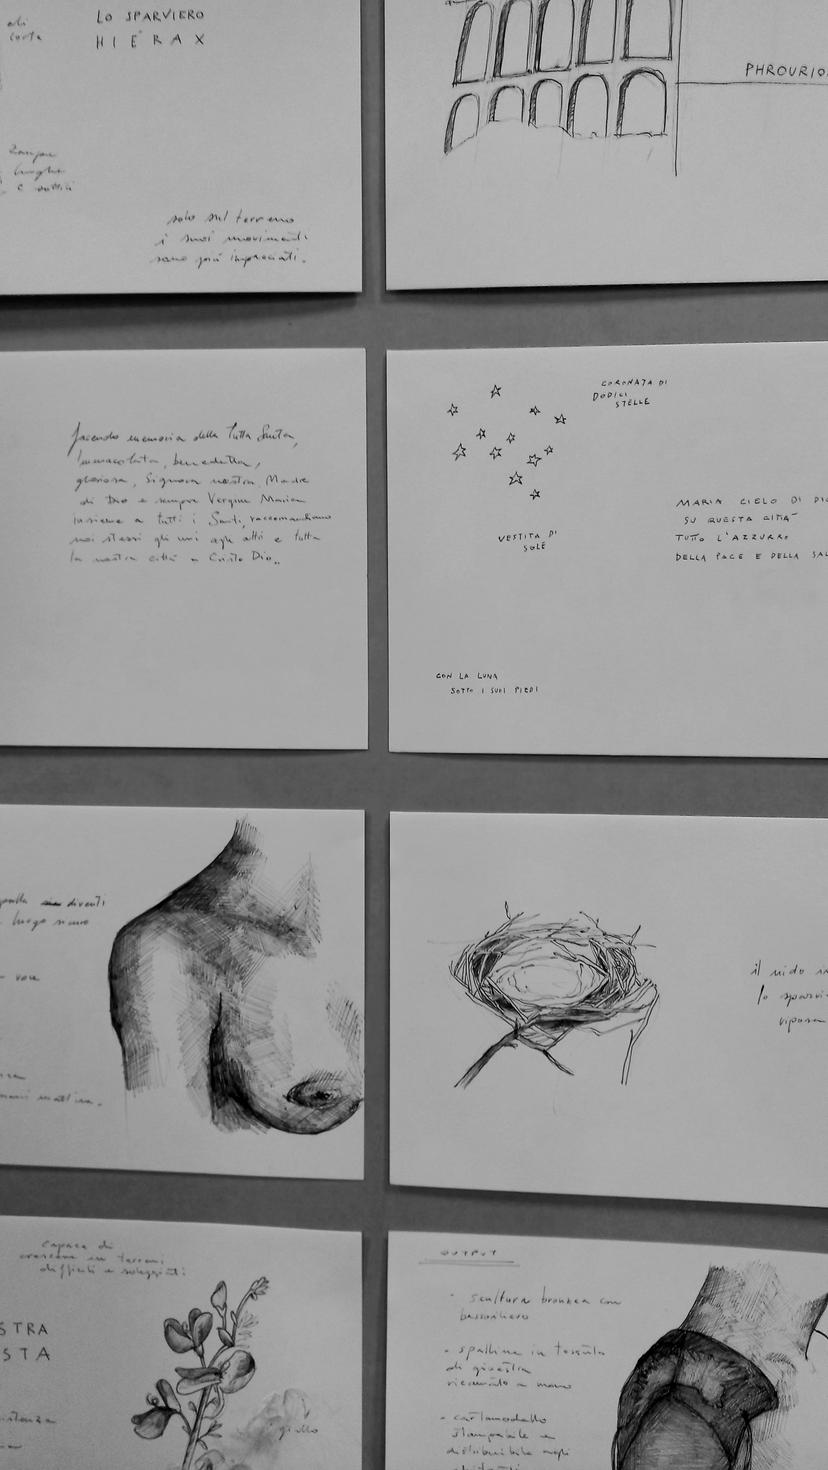 di
corta
LO SPARVIERO
HIÉRAX
zampe
lunghe
e sottili
solo sul terreno
i suoi movimenti
sono più impacciati.
PHROURIO
facendo memoria della tutta Santa,
Immacolata, benedetta,
gloriosa, Signora nostra, Madre
di Dio e sempre Vergine Maria
insieme a tutti i Santi, raccomandiamo
noi stessi gli uni agli altri e tutta
la nostra città a Cristo Dio..
CORONATA DI
DODICI
STELLE
VESTITA DI
SOLE
MARIA CIELO DI DIO
SU QUESTA CITTÀ
TUTTO L'AZZURRO
DELLA PACE E DELLA SAL
CON LA LUNA
SOTTO I SUOI PIEDI
spalla diventi
luogo sicuro
voce
mattina.
il nido in
lo sparvie
riposa
capace di
crescere in terreni
difficili e soleggiati:
STRA
STA
giallo
OUTPUT
- scultura bronzea con
bassorilievo
- spallina in tessuto
di ginestra
ricamato a mano
- cartamodello
stampabile e
distribuibile agli